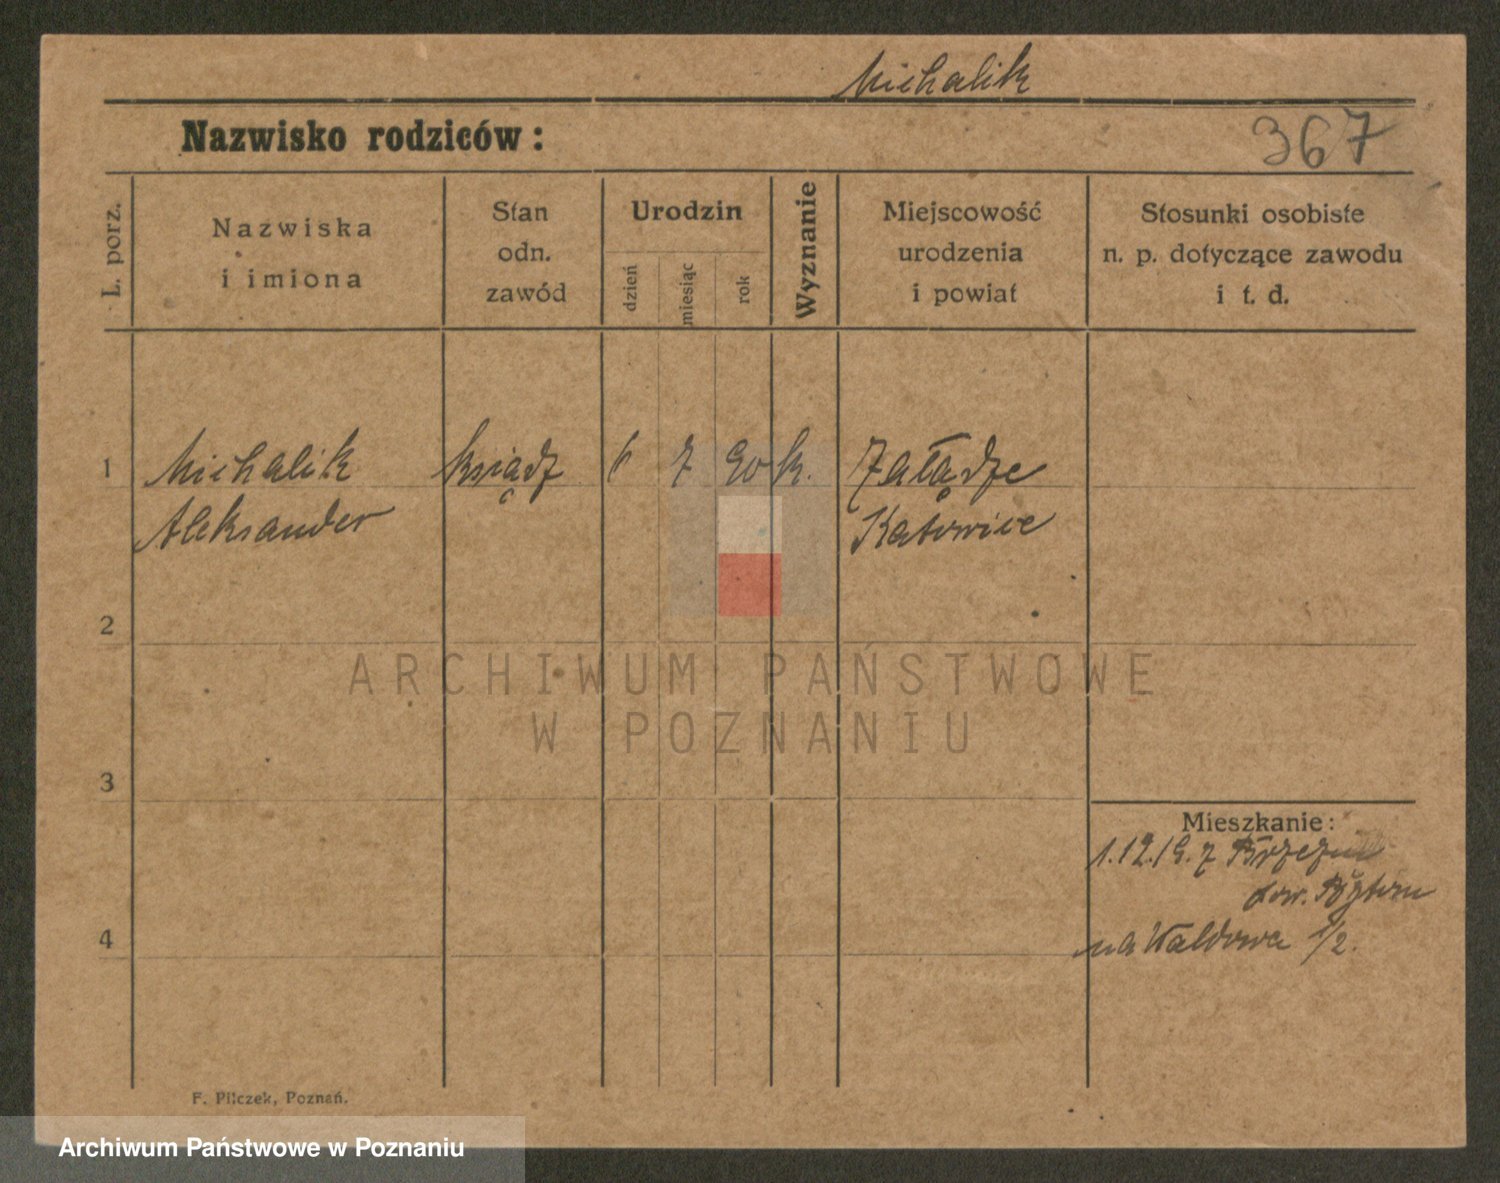 Michalik
Nazwisko rodziców:
367
L. porz.
Nazwiska
i imiona
Stan
odn.
zawód
Urodzin
dzień
miesiąc
rok
Wyznanie
Miejscowość
urodzenia
i powiat
Stosunki osobiste
n. p. dotyczące zawodu
i t. d.
1
Michalik
Aleksander
ksiądz
6
7
90
k.
Załądze
Katowice
2
3
4
Mieszkanie:
1.12.19. z
pow. Bytom
na Waldowa 1/2.
F. Pilczek, Poznań.
ARCHIWUM PAŃSTWOWE
W POZNANIU
Archiwum Państwowe w Poznaniu